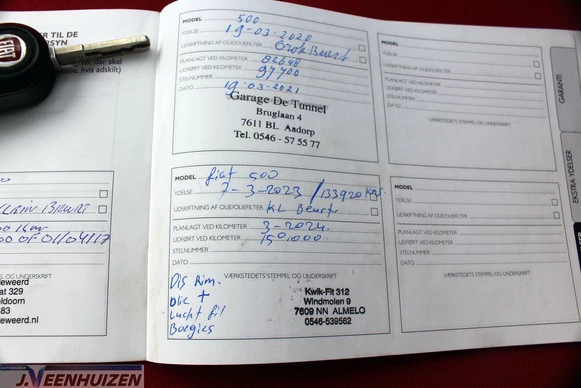 ER TIL DE
RSYN
der skal
hvis adskilt)
FIAT
00 OF 01/04/17
OG UNDERSKRIFT
deweerd
at 329
ldoorn
83
eweerd.nl
MODEL 500
YDELSE 19-03-2020
UDSKIFTNING AF OLIE/OLIEFILTER Grok Beurt
PLANLAGT VED KILOMETER 82648
UDFØRT VED KILOMETER 97400
STELNUMMER
DATO 19-03-2021
Garage De Tunnel
Bruglaan 4
7611 BL Aadorp
Tel. 0546 - 57 55 77
MODEL fiat 500
YDELSE 7-3-2023 / 133920 kgs.
UDSKIFTNING AF OLIE/OLIEFILTER KL Beurt
PLANLAGT VED KILOMETER 3-2024
UDFØRT VED KILOMETER 150.000
STELNUMMER
DATO
VÆRKSTEDETS STEMPEL OG UNDERSKRIFT
olie +
Lucht fil
Boegies
Kwik-Fit 312
Windmolen 9
7609 NN ALMELO
0546-539562
MODEL
YDELSE
UDSKIFTNING AF OLIE/OLIEFILTER
PLANLAGT VED KILOMETER
UDFØRT VED KILOMETER
STELNUMMER
DATO
VÆRKSTEDETS STEMPEL OG UNDERSKRIFT
MODEL
YDELSE
UDSKIFTNING AF OLIE/OLIEFILTER
PLANLAGT VED KILOMETER
UDFØRT VED KILOMETER
STELNUMMER
DATO
VÆRKSTEDETS STEMPEL OG UNDERSKRIFT
GARANTI
EKSTRA YDELSER
SER
AUTOBEDRIJF
J. VEENHUIZEN